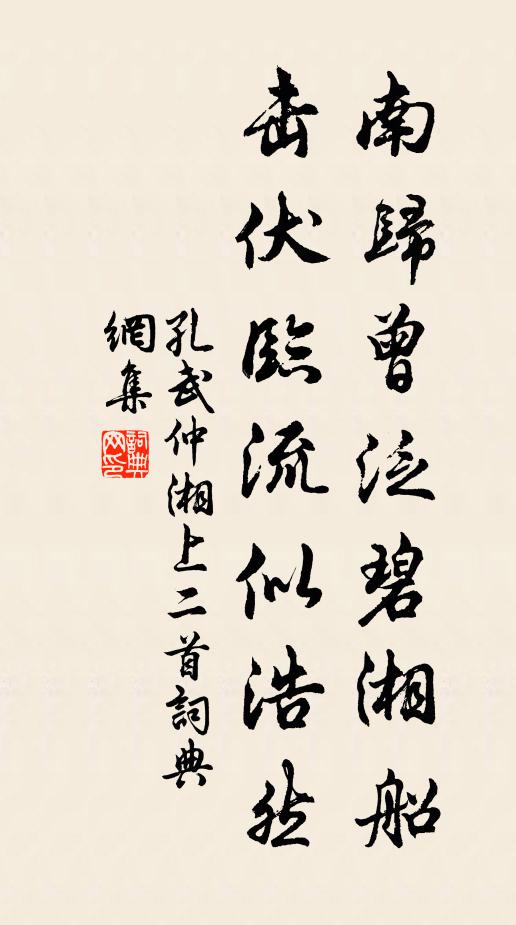 南歸曾泛碧湘船
击伏臨流似浩然
孔武仲湘上二首詞典
網集
詞典
网印